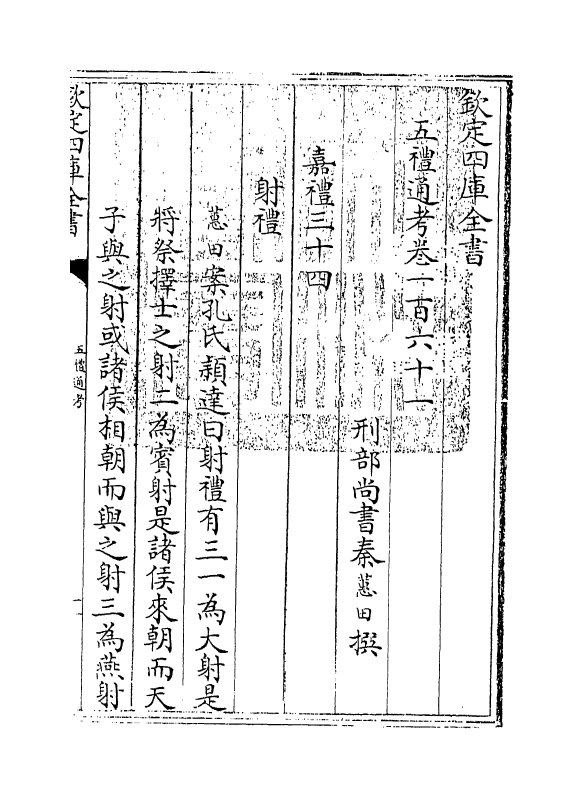 欽定四庫全書
五禮通考卷一百六十一
刑部尚書秦蕙田撰
嘉禮三十四
射禮
蕙田案孔氏穎達曰射禮有三一為大射是
將祭擇士之射二為賓射是諸侯來朝而天
子與之射或諸侯相朝而與之射三為燕射
欽定四庫全書
五禮通考
一